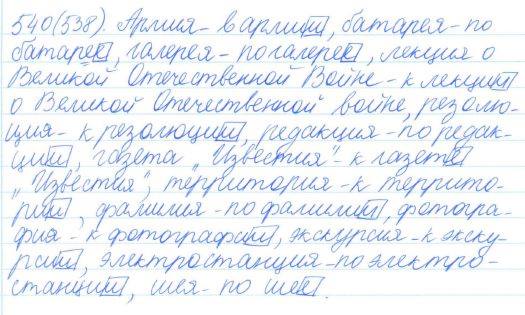 540(538). Армия - в армии, батарея - по
батарее, галерея - по галерее, лекция о
Великой Отечественной Войне - к лекции
о Великой Отечественной войне, резолю-
ция - к резолюции, редакция - по редак-
ции, газета „Известия" - к газете
„Известия", территория - к террито-
рии, фамилия - по фамилии, фотогра-
фия - к фотографии, экскурсия - к экску-
рсии, электростанция - по электро-
станции, шея - по шее.